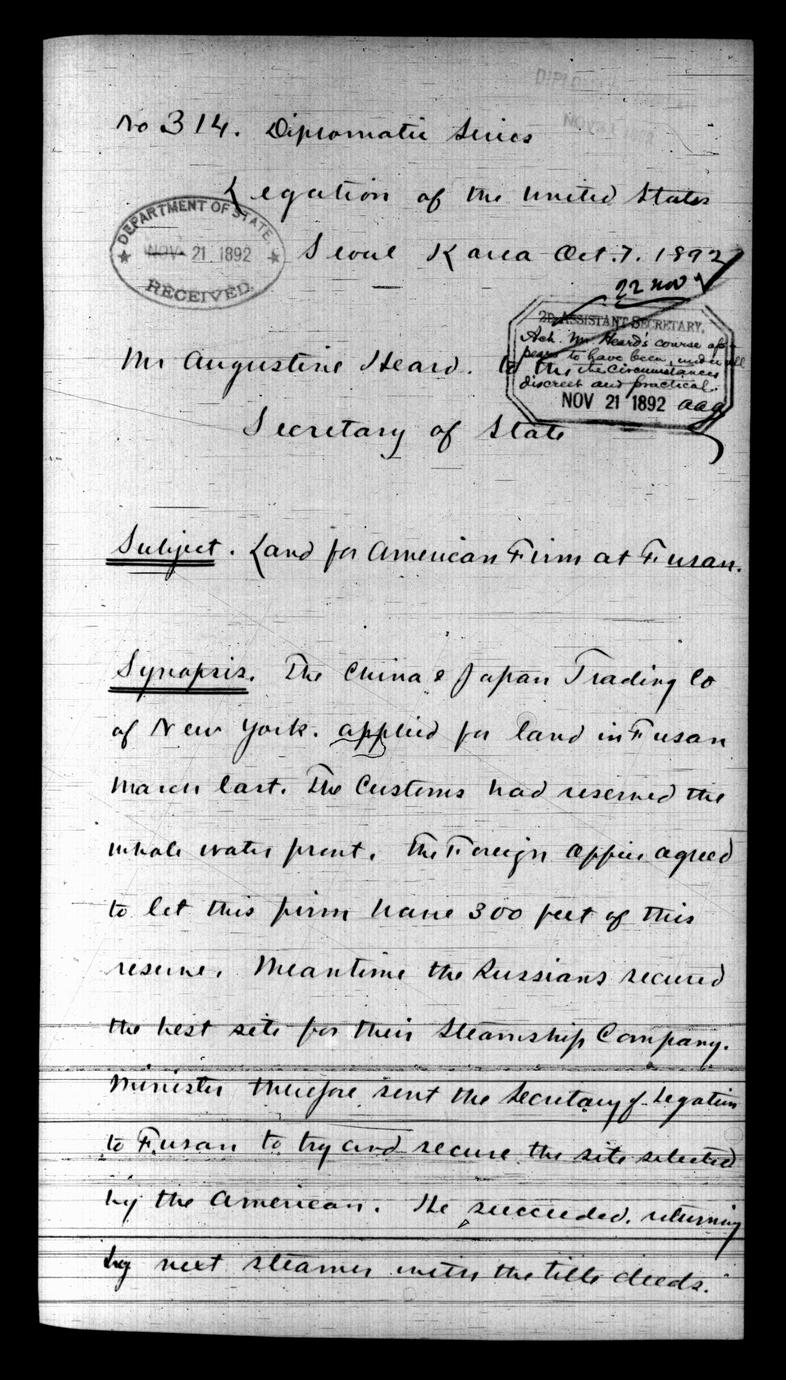 DIPLOMATIC
NOV 1892
No 314. Diplomatic Series
Legation of the United States
DEPARTMENT OF STATE
NOV 21 1892
RECEIVED
Seoul Korea Oct. 7. 1892
22 Nov
2D ASSISTANT SECRETARY.
Ack. Mr Heard's course ap-
pears to have been, under all
the circumstances
discreet and practical.
NOV 21 1892 aaa
Mr Augustine Heard. to the
Secretary of State
Subject. Land for American Firm at Fusan.
Synopsis. The China & Japan Trading Co
of New York. applied for land in Fusan
March last. The Customs had reserved the
whole water front. The Foreign Office agreed
to let this firm have 300 feet of this
reserve. Meantime the Russians secured
the best site for their Steamship Company.
Minister therefore sent the Secretary of Legation
to Fusan to try and secure the site selected
by the American. He succeeded. returning
by next steamer with the title deeds.